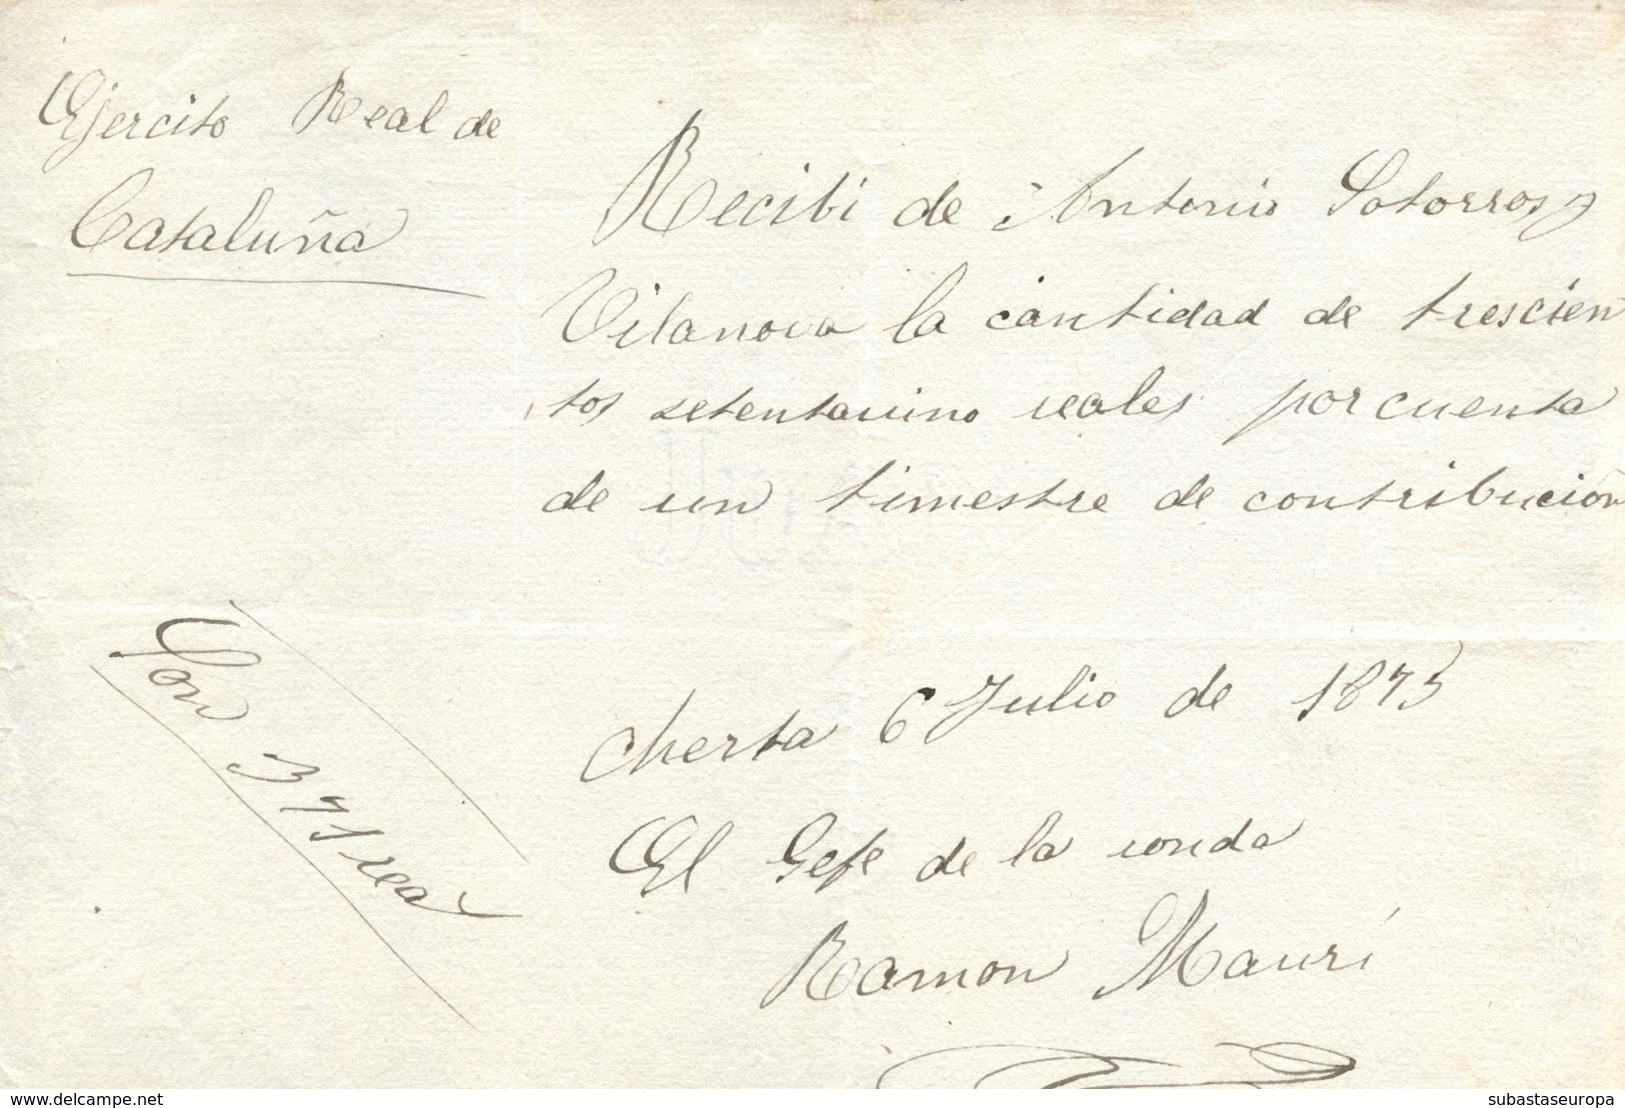 Ejercito Real de
Cataluña
Recibi de Antonio Sotorros y
Vilanova la cantidad de trescien
tos setentaiuno reales por cuenta
de un timestre de contribución
Son 371 reas
Cherta 6 Julio de 1875
El Gefe de la ronda
Ramon Maurí
www.delcampe.net
subastaseuropa